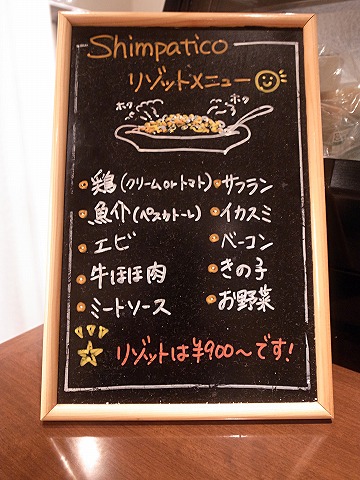 Shimpatico
リゾットメニュー
ホク ホク
鶏(クリーム or トマト)
魚介(ペスカトーレ)
エビ
牛ほほ肉
ミートソース
サフラン
イカスミ
ベーコン
きの子
お野菜
リゾットは¥900〜です!